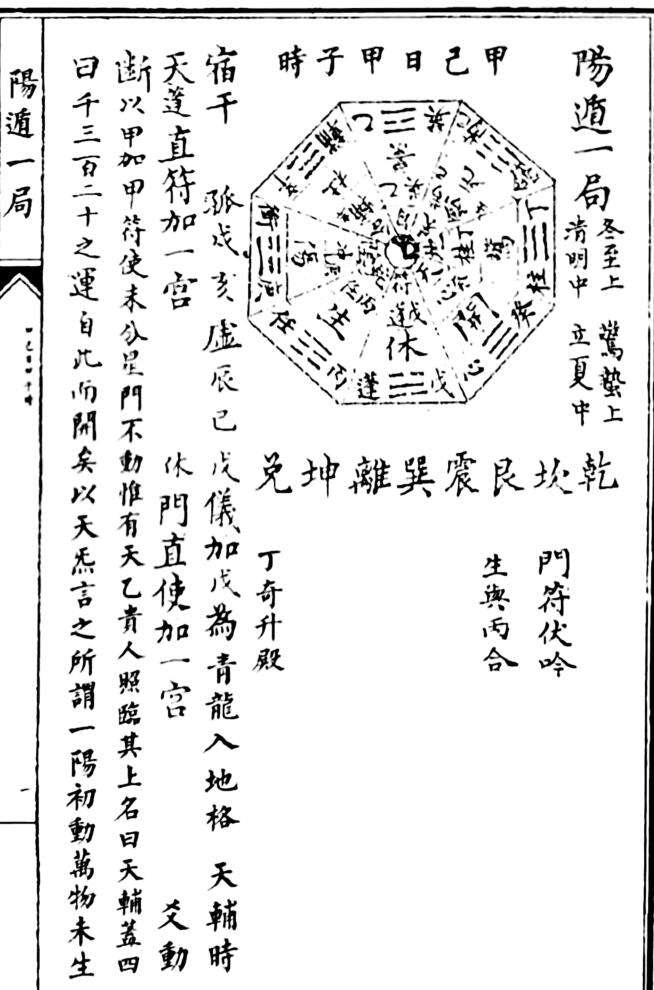 陽遁一局
冬至上 驚蟄上
清明中 立夏中
甲己日甲子時
乾坎艮震巽離坤兌
門符伏吟
生與丙合
丁奇升殿
宿干 孤戌亥虛辰巳 戊儀加戊為青龍入地格 天輔時
天蓬直符加一宮 休門直使加一宮 爻動
斷以甲加甲符使未分星門不動惟有天乙貴人照臨其上名曰天輔蓋四
曰千三百二十之運自此而開矣以天炁言之所謂一陽初動萬物未生
陽遁一局